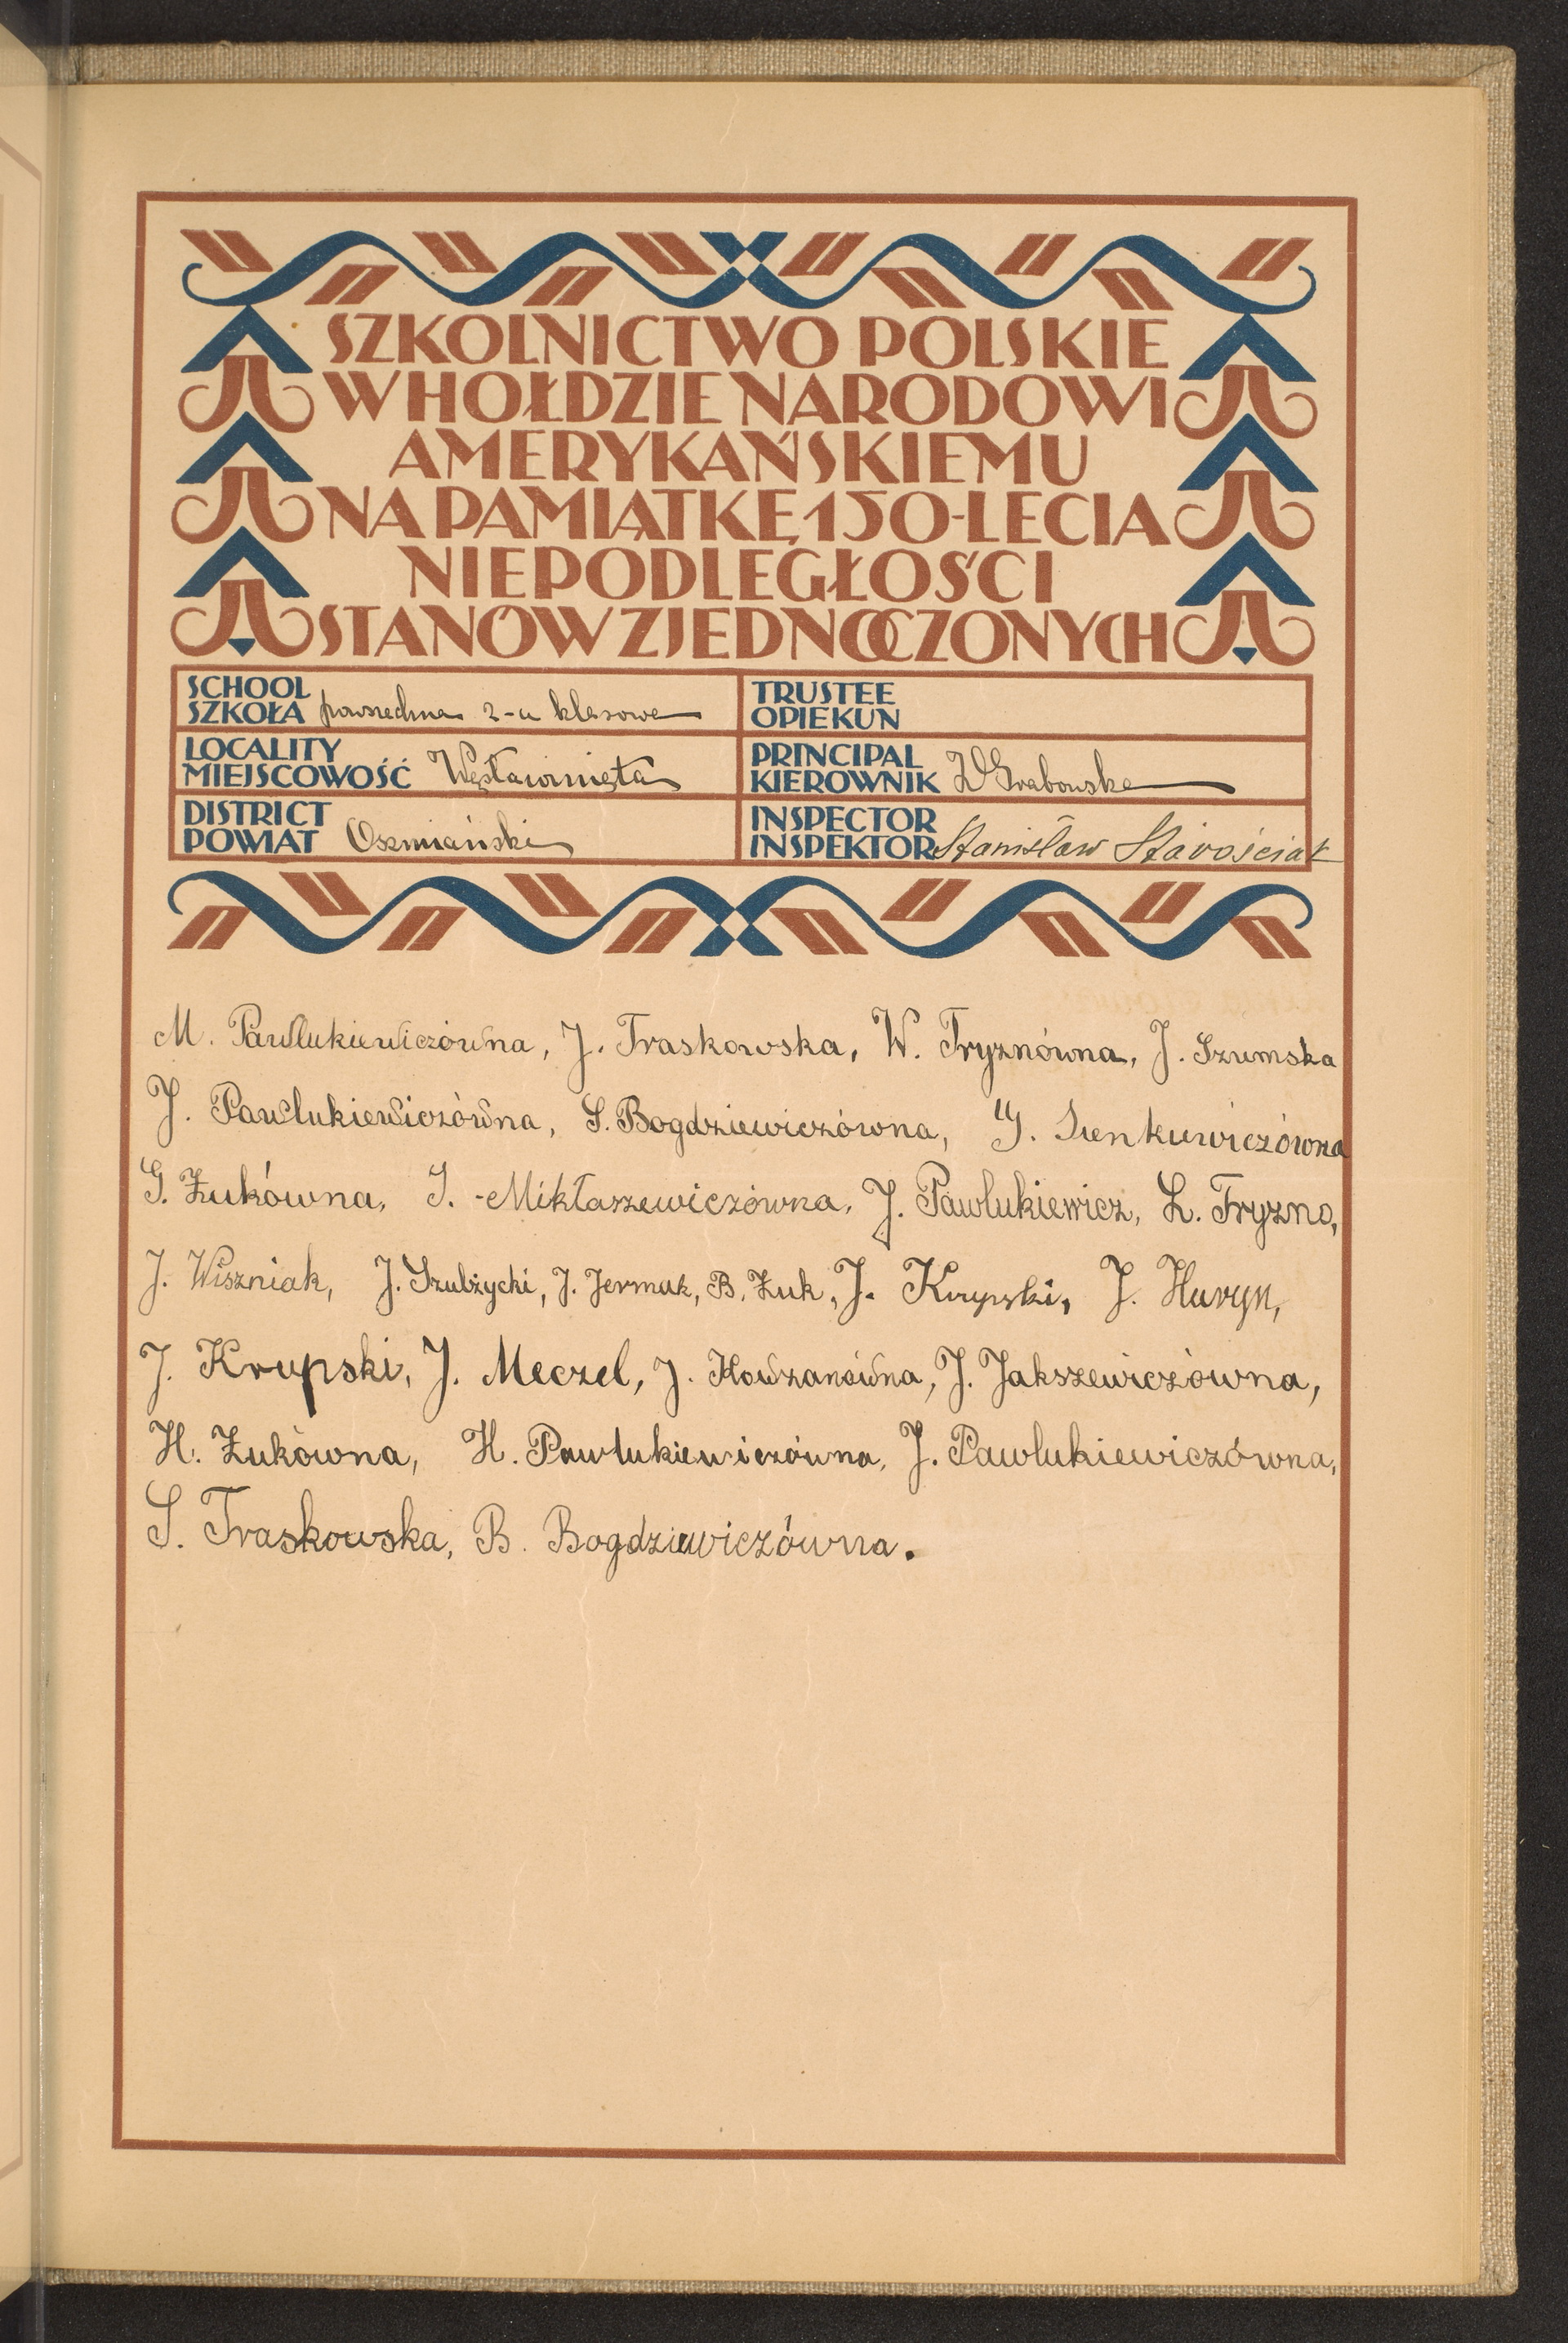 SZKOLNICTWO POLSKIE
W HOŁDZIE NARODOWI
AMERYKAŃSKIEMU
NA PAMIĄTKĘ 150-LECIA
NIEPODLEGŁOŚCI
STANÓW ZJEDNOCZONYCH
SCHOOL
SZKOŁA powszechna 2-u klasowa
LOCALITY
MIEJSCOWOŚĆ Węsławinięta
DISTRICT
POWIAT Oszmiański
TRUSTEE
OPIEKUN
PRINCIPAL
KIEROWNIK W Grabowska
INSPECTOR
INSPEKTOR Stanisław Starościak
M. Pawlukiewiczówna, J. Traskowska, W. Fryznówna, J. Szumska
J. Pawlukiewiczówna, S. Bogdziewiczówna, J. Sienkiewiczówna
G. Żukówna, J. Mikłaszewiczówna, J. Pawlukiewicz, L. Fryzno,
J. Wiszniak, J. Szubzycki, J. Jermak, B. Żuk, J. Krupski, J. Huryn,
J. Krupski, J. Meczel, J. Howzanówna, J. Jakszewiczówna,
H. Żukówna, H. Pawlukiewiczówna, J. Pawlukiewiczówna,
S. Traskowska, B. Bogdziewiczówna.